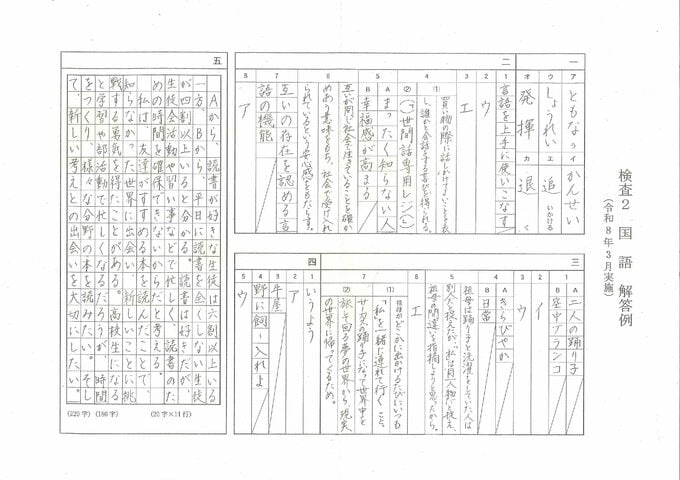 検査2 国語 解答例
(令和8年3月実施)
一
ア ともなっ
イ かんせい
ウ しょうれい
エ 追 いかける
オ 発揮
カ 退 く
二
1 言語を上手に使いこなす
2 ウ
3 エ
4
(1) 買い物の際に話しかけることを
し、誰かと会話をする喜びを得られる。
(2) (「)世間話専用レジ(」)
5
A まったく知らない人
B 幸福感が高まる
6 互いが同じ社会で生きていることを確か
めあう意味をもち、社会で受け入れ
られているという安心感をもたらす。
7 互いの存在を認める言
語の機能
8 ア
三
1
A 二人の踊り子
B 空中ブランコ
2 イ
3 ウ
4
A きらびやか
B 日常
5 祖母は踊り子と洗濯をしていた人は
別人と捉えたが、「私」は同一人物だと捉え、
祖母の間違いを指摘しようと思ったから。
6 エ
7
(1) 祖母がどこかに出かけるたびにいつも
「私」を一緒に連れて行くこと。
(2) サーカスの踊り子になって世界中を
旅して回る夢の世界から、現実
の世界に帰ってくるため。
四
1 いうよう
2 ア
3 牛屋
4 野に飼ー入れよ
5 ウ
五
Aから、読書が好きな生徒は六割以上いる
一方、Bから、平日に読書を全くしない生徒
が四割以上いると分かる。読書は好きだが、
生徒会活動や習い事などで忙しく、読書のた
めの時間を確保できないのだと考える。
私は、友達がすすめる本を読んだことで、
知らなかった世界に出会い、新しいことに挑
戦する勇気を得たことがある。高校生になる
と学習や部活動で忙しくなるだろうが、時間
をつくり、様々な分野の本を読みたい。そし
て、新しい考えとの出会いを大切にしたい。
(220字) (180字) (20字×11行)